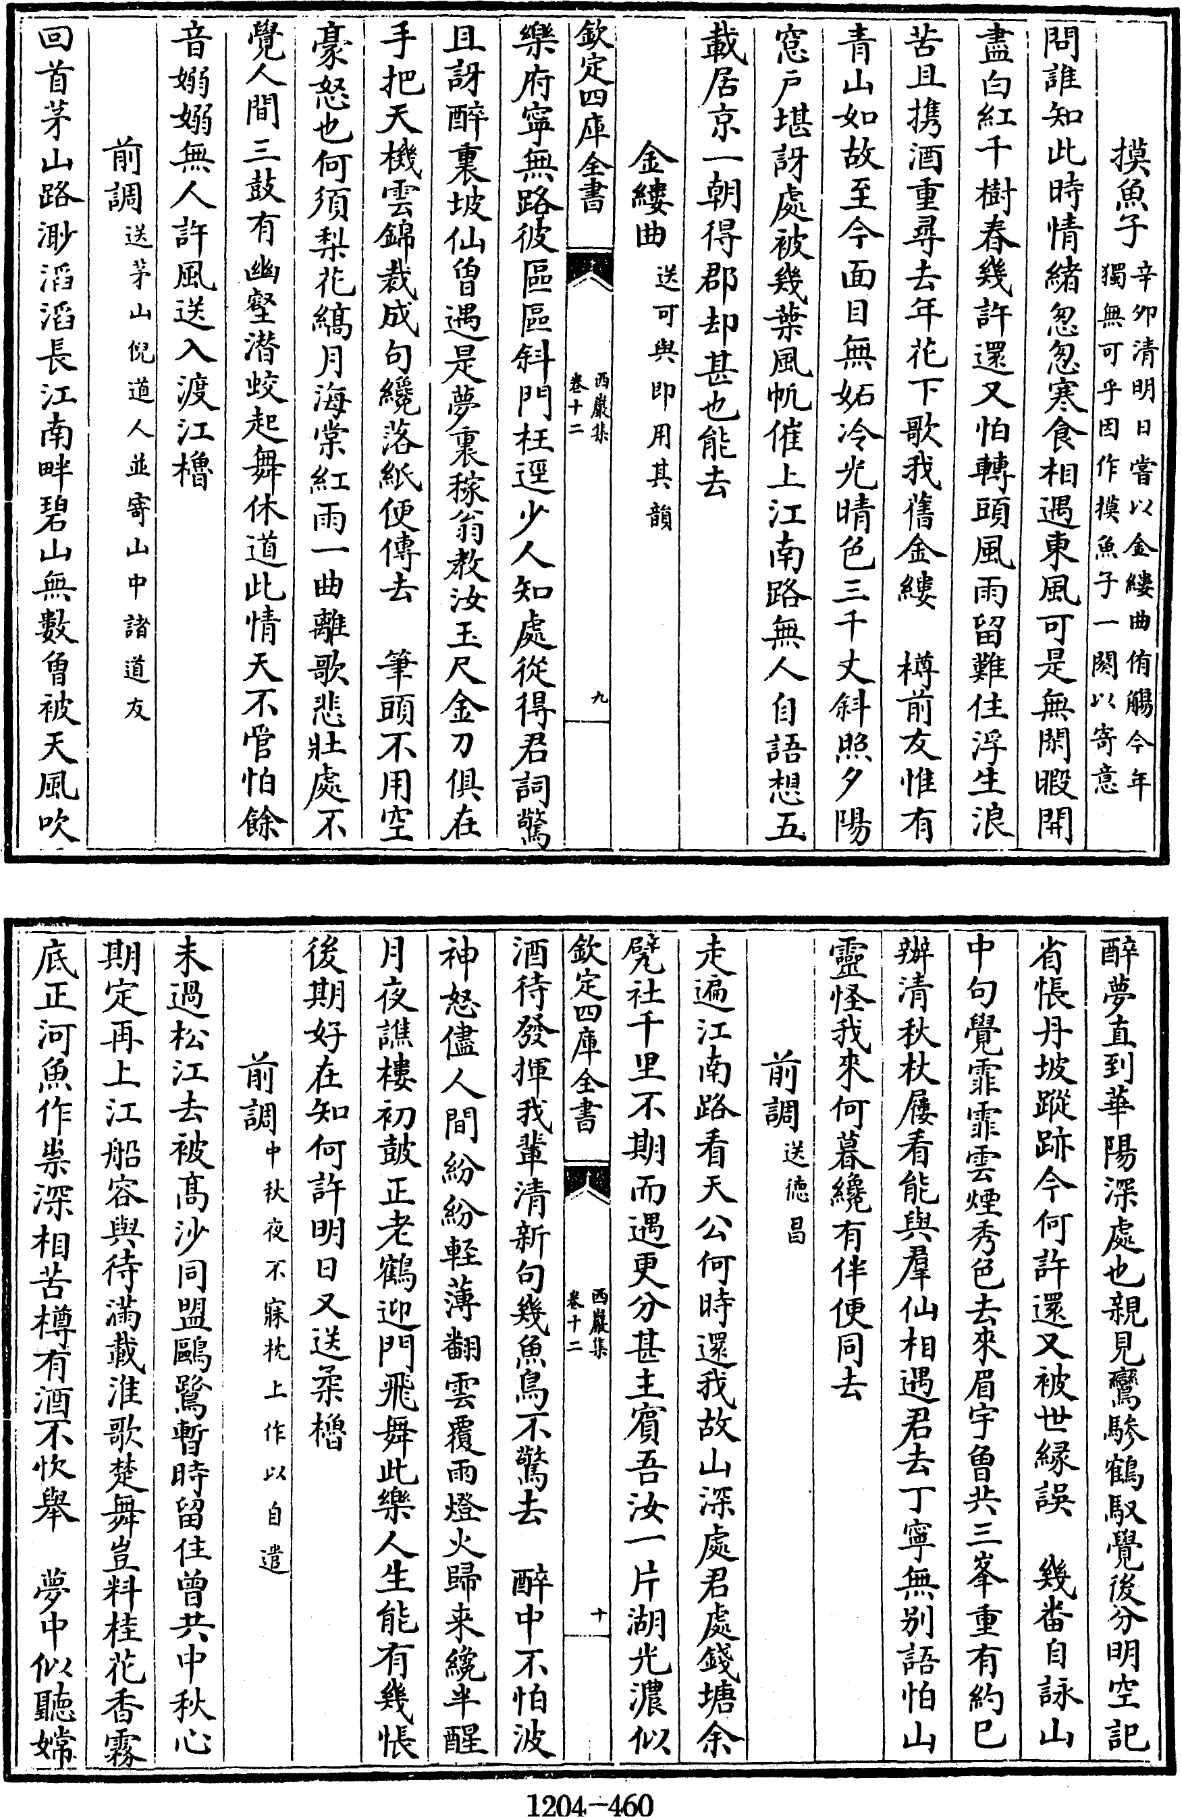 摸魚子辛卯清明日嘗以金縷曲侑觴今年
獨無可乎因作摸魚子一闋以寄意
問誰知此時情緒怱怱寒食相遇東風可是無閒暇開
盡白紅千樹春幾許還又怕轉頭風雨留難住浮生浪
苦且携酒重尋去年花下歌我舊金縷　樽前友惟有
青山如故至今面目無妬冷光晴色三千丈斜照夕陽
窓戶堪訝處被幾葉風帆催上江南路無人自語想五
載居京一朝得郡却甚也能去
金縷曲送可與即用其韻
欽定四庫全書
西巖集
卷十二
九
樂府寧無路彼區區斜門枉逕少人知處從得君詞驚
且訝醉裏坡仙曾遇是夢裏稼翁教汝玉尺金刀俱在
手把天機雲錦裁成句纔落紙便傳去　筆頭不用空
豪怒也何須梨花縞月海棠紅雨一曲離歌悲壯處不
覺人間三鼓有幽壑潛蛟起舞休道此情天不管怕餘
音嫋嫋無人許風送入渡江櫓
前調送茅山倪道人並寄山中諸道友
回首茅山路渺滔滔長江南畔碧山無數曾被天風吹
醉夢直到華陽深處也親見鸞驂鶴馭覺後分明空記
省悵丹坡蹤跡今何許還又被世緣誤　幾畨自詠山
中句覺霏霏雲煙秀色去來眉宇曾共三峯重有約已
辦清秋杖屨看能與羣仙相遇君去丁寧無别語怕山
靈怪我來何暮纔有伴便同去
前調送德昌
走遍江南路看天公何時還我故山深處君處錢塘余
甓社千里不期而遇更分甚主賓吾汝一片湖光濃似
欽定四庫全書
西巖集
卷十二
十
酒待發揮我輩清新句幾魚鳥不驚去　醉中不怕波
神怒儘人間紛紛輕薄翻雲覆雨燈火歸来纔半醒
月夜譙樓初鼓正老鶴迎門飛舞此樂人生能有幾悵
後期好在知何許明日又送柔櫓
前調中秋夜不寐枕上作以自遣
未過松江去被髙沙同盟鷗鷺暫時留住曾共中秋心
期定再上江船容與待滿載淮歌楚舞豈料桂花香霧
底正河魚作祟深相苦樽有酒不忺舉　夢中似聽嫦
1204-460